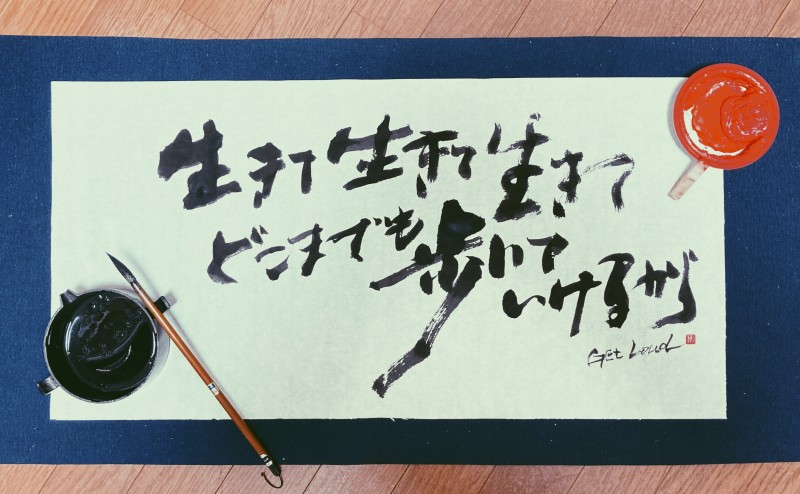 生きて生きて生きて
どこまでも歩いて
いけるから
Get Loud